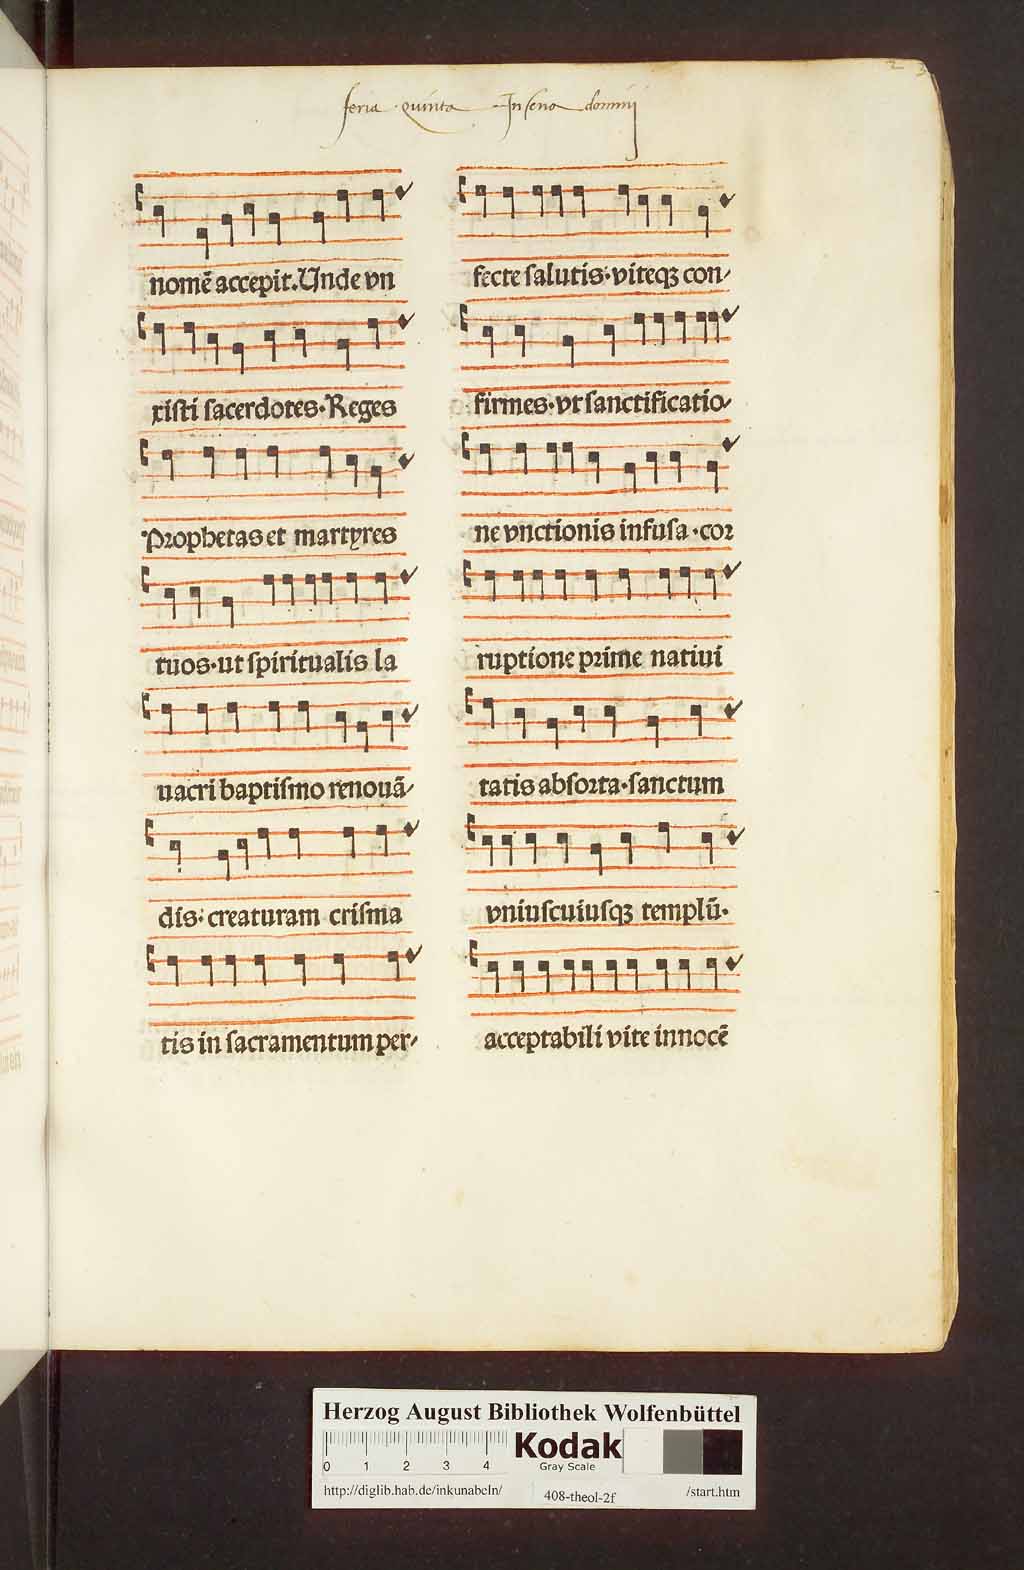 feria quinta In sena domini
2
nomē accepit. Unde vn
xisti sacerdotes· Reges
Prophetas et martyres
tuos· ut spiritualis la
uacri baptismo renouā⸗
dis: creaturam crisma
tis in sacramentum per⸗
fecte salutis· viteqʒ con⸗
firmes· vt sanctificatio⸗
ne vnctionis infusa· cor
ruptione prime natiui
tatis absorta· sanctum
vniuscuiusqʒ templū·
acceptabili vite innocē
Herzog August Bibliothek Wolfenbüttel
0 1 2 3 4
Kodak
Gray Scale
http://diglib.hab.de/inkunabeln/ 408-theol-2f /start.htm